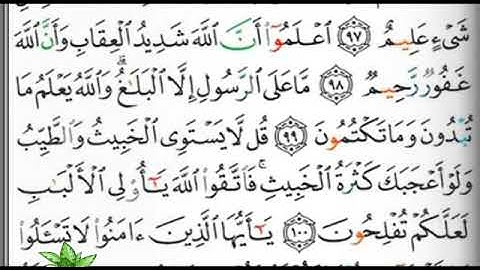 شَىْءٍ عَلِيمٌ ٩٧ ٱعْلَمُوٓا۟ أَنَّ ٱللَّهَ شَدِيدُ ٱلْعِقَابِ وَأَنَّ ٱللَّهَ
غَفُورٌ رَّحِيمٌ ٩٨ مَّا عَلَى ٱلرَّسُولِ إِلَّا ٱلْبَلَـٰغُ ۗ وَٱللَّهُ يَعْلَمُ مَا
تُبْدُونَ وَمَا تَكْتُمُونَ ٩٩ قُل لَّا يَسْتَوِى ٱلْخَبِيثُ وَٱلطَّيِّبُ
وَلَوْ أَعْجَبَكَ كَثْرَةُ ٱلْخَبِيثِ ۚ فَٱتَّقُوا۟ ٱللَّهَ يَـٰٓأُو۟لِى ٱلْأَلْبَـٰبِ
لَعَلَّكُمْ تُفْلِحُونَ ١٠٠ يَـٰٓأَيُّهَا ٱلَّذِينَ ءَامَنُوا۟ لَا تَسْـَٔلُوا۟